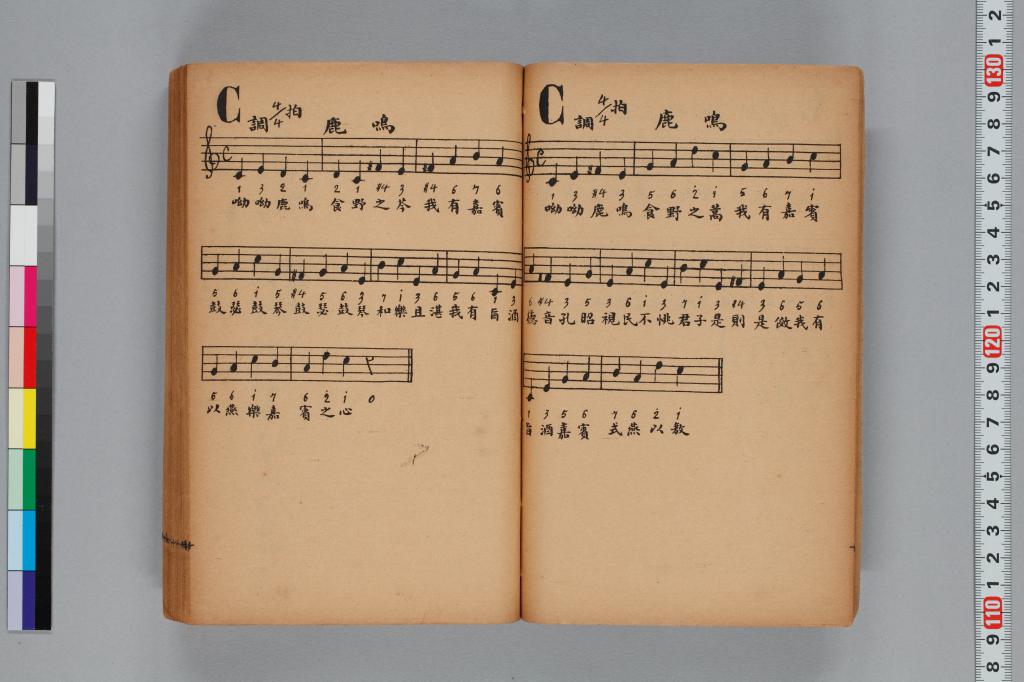 C調 4/4拍 鹿鳴
1 3 2 1 2 1 #4 3 #4 6 7 6
呦呦鹿鳴 食野之芩 我有嘉賓
5 6 i 5 #4 5 6 3 7 i 3 6 5 6 1 3
鼓瑟鼓琴 鼓瑟鼓琴 和樂且湛 我有旨酒
5 6 i 7 6 2̇ i 0
以燕樂嘉 賓之心
C調 4/4拍 鹿鳴
1 3 #4 3 5 6 2̇ i 5 6 7 i
呦呦鹿鳴 食野之蒿 我有嘉賓
6 #4 3 5 3 6 i 3 7 i 3 #4 3 6 5 6
德音孔昭 視民不恌 君子是則 是傚我有
1 3 5 6 7 6 2̇ i
旨酒嘉賓 式燕以敖
130
120
110